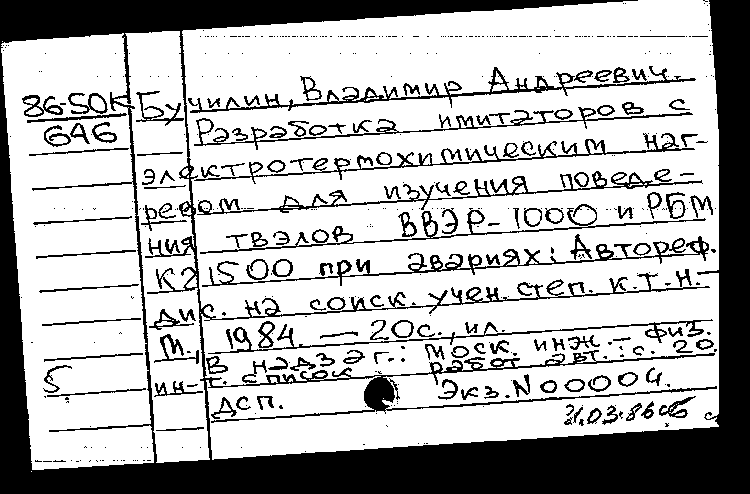 86-5ОК
646
Бучилин, Владимир Андреевич.
Разработка имитаторов с
электротермохимическим наг-
ревом для изучения поведе-
ния твэлов ВВЭР-1000 и РБМ
К 21500 при авариях: Автореф.
дис. на соиск. учен. степ. к.т.н.-
М., 1984. — 20с., ил.
В надзаг.: Моск. инж.-физ.
ин-т. Список работ авт.: с. 20
5.
ДСП. Экз. N 00004.
21.03.86